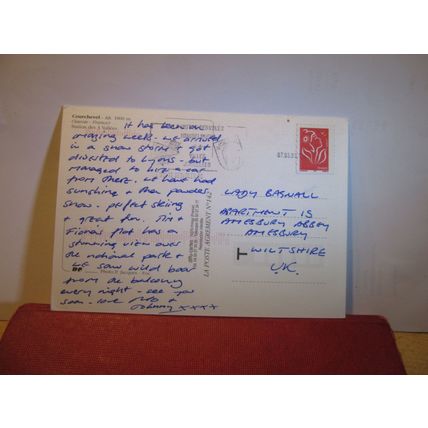 Courchevel - Alt. 1800 m
(Savoie - France)
Station des 3 Vallées
It has been an
amazing week. we arrived
in a snow storm & got
diverted to Lyons - but
managed to hire a car
from there. we have had
sunshine & then powder
snow. perfect skiing
& great fun.
Fiona's flat has a
stunning view over
the national park &
we saw wild boar
from the balcony
every night - see you
soon. love
Johnny xxxx
Photo P. Jacques
LA POSTE AGREMENT N° 142
LADY BAGNALL
APARTMENT 15
AMESBURY ABBEY
AMESBURY
WILTSHIRE
U.K.
T